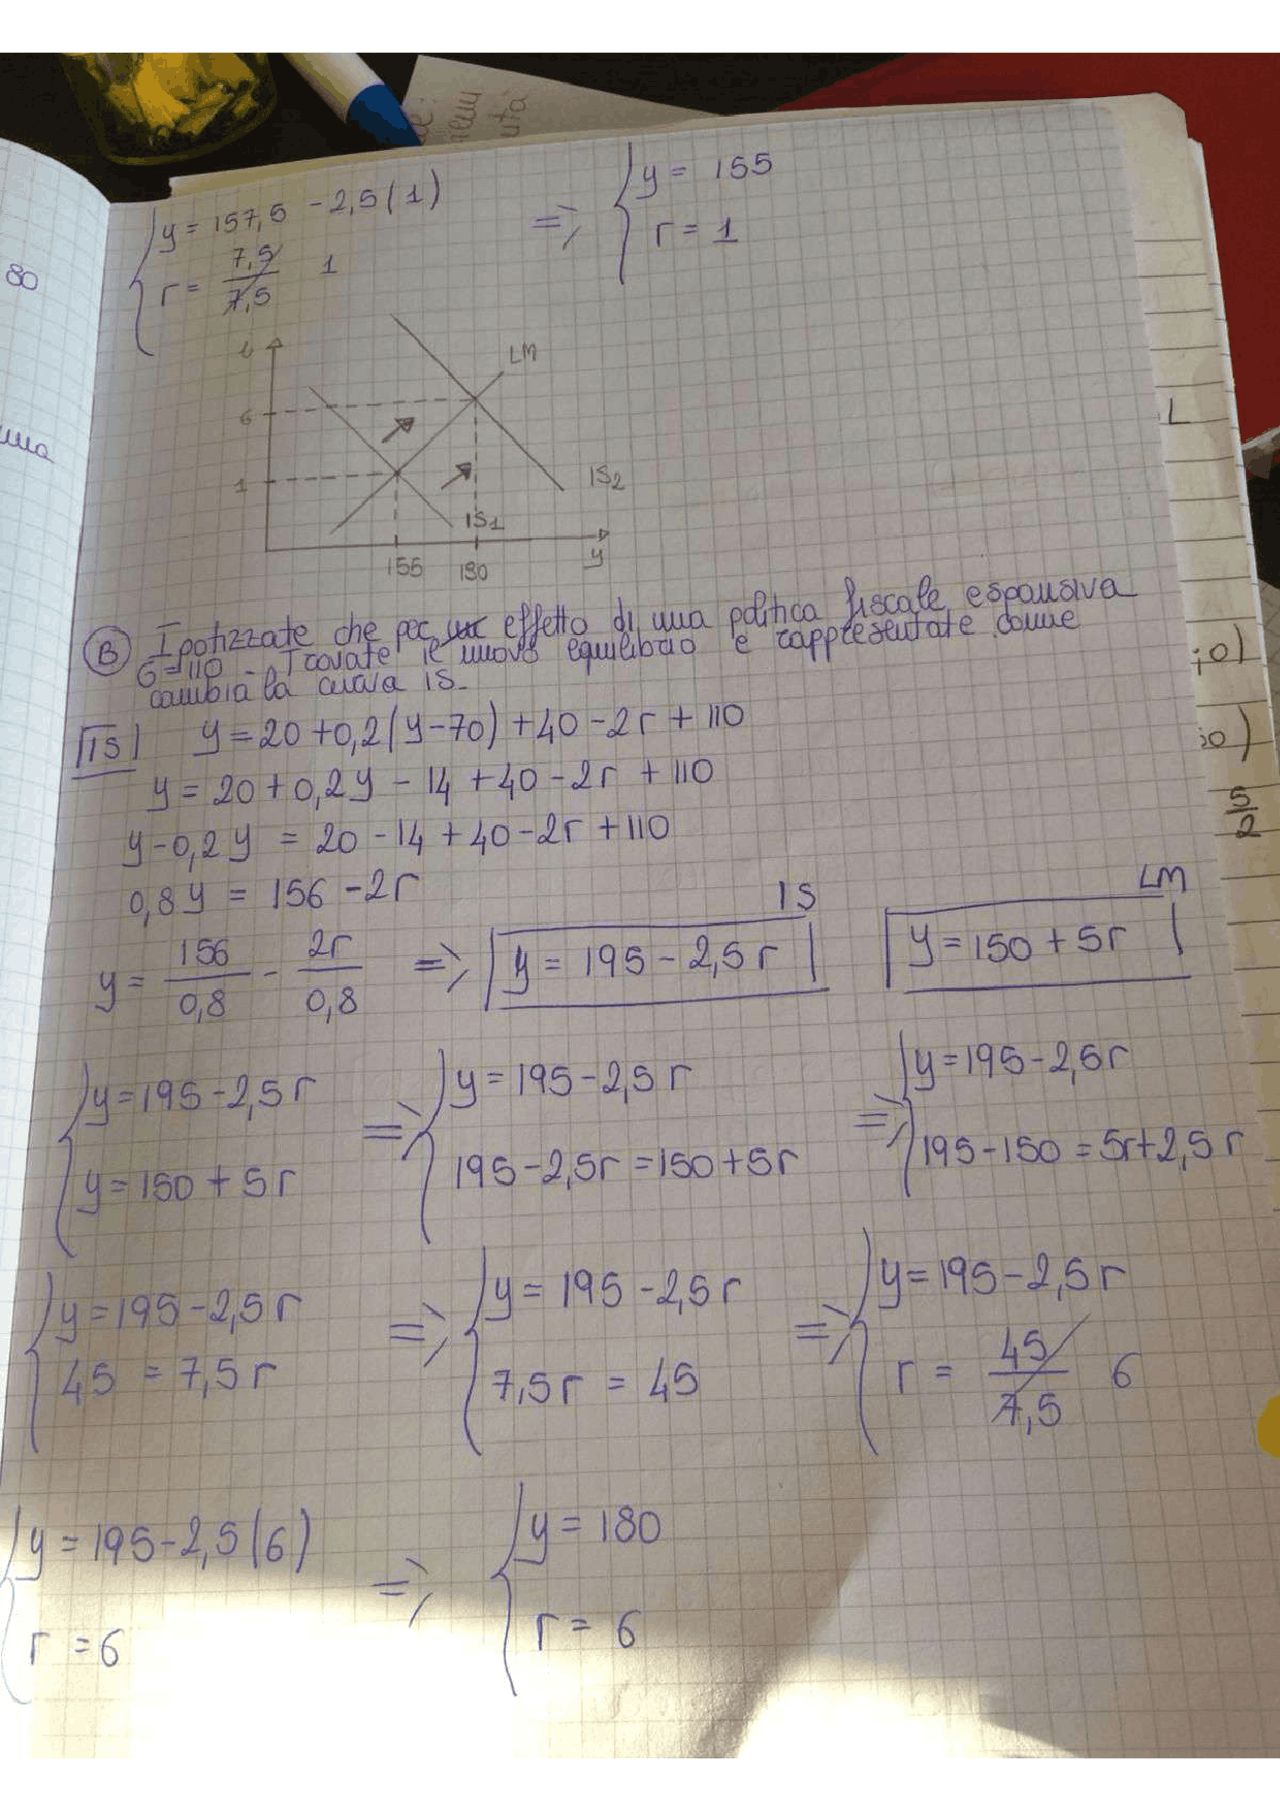 y = 157,5 - 2,5(1) => y = 155
r = 7,5/7,5 1 r = 1
80
i
LM
6
L
IS2
1
IS1
y
155 180
B Ipotizzate che per effetto di una politica fiscale espansiva
G=110. Trovate il nuovo equilibrio e rappresentate come
cambia la curva IS.
;0)
IS y = 20 + 0,2(y-70) + 40 - 2r + 110
y = 20 + 0,2y - 14 + 40 - 2r + 110
5/2
y - 0,2y = 20 - 14 + 40 - 2r + 110
0,8y = 156 - 2r
IS LM
y = 156/0,8 - 2r/0,8 => y = 195 - 2,5r y = 150 + 5r
y = 195 - 2,5r => y = 195 - 2,5r => y = 195 - 2,5r
y = 150 + 5r 195 - 2,5r = 150 + 5r 195 - 150 = 5r + 2,5r
y = 195 - 2,5r => y = 195 - 2,5r => y = 195 - 2,5r
45 = 7,5r 7,5r = 45 r = 45/7,5 6
y = 195 - 2,5(6) => y = 180
r = 6 r = 6